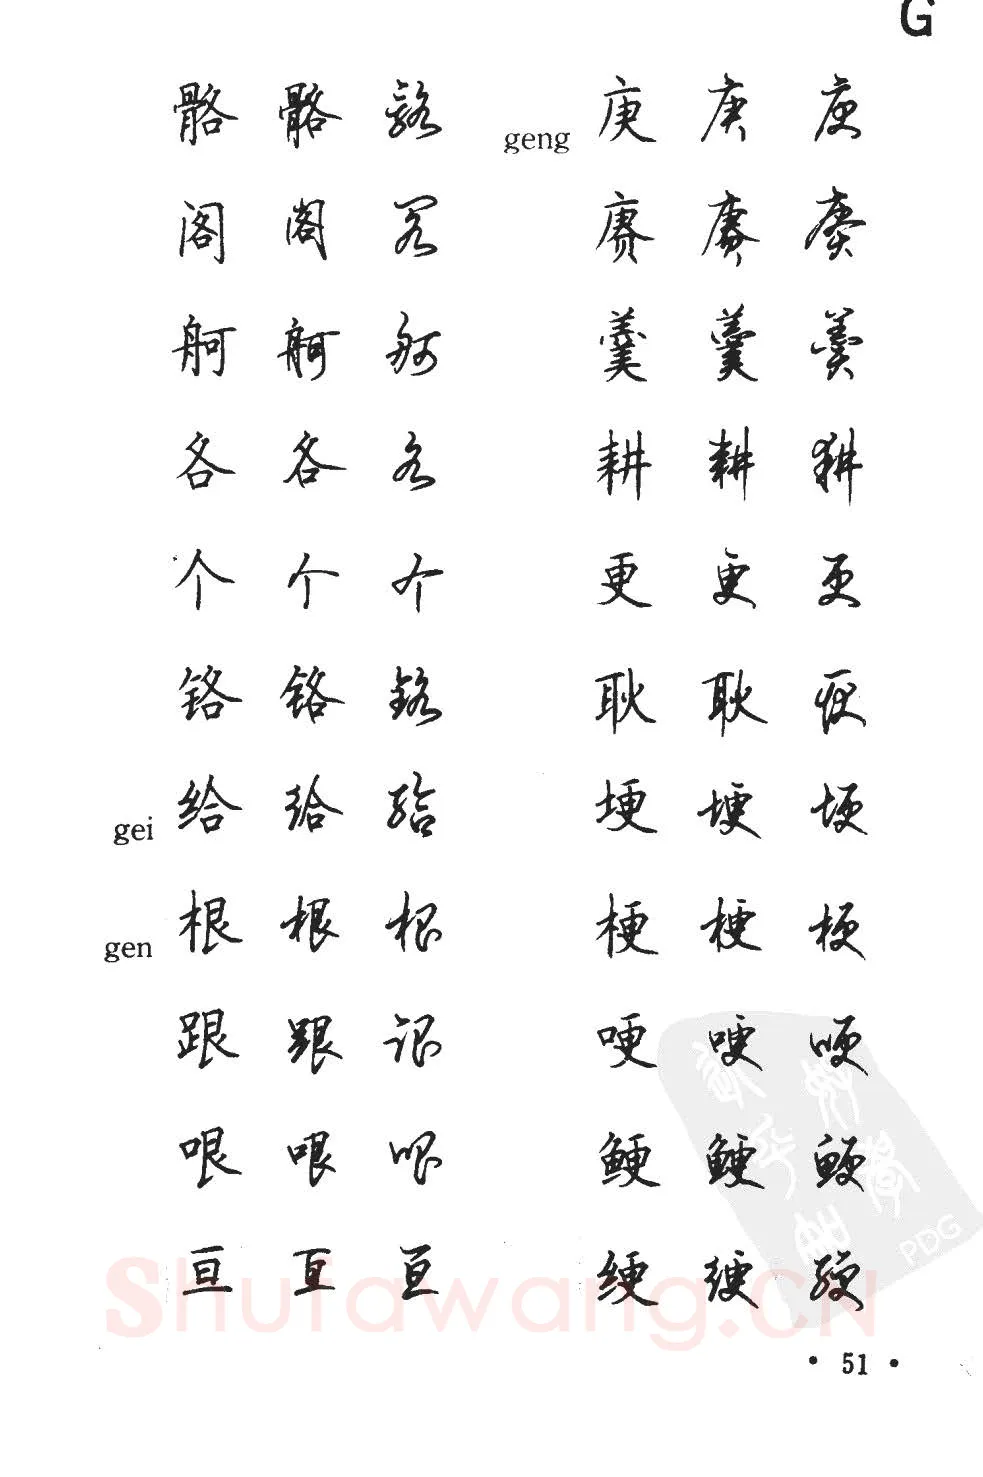 G
骼 骼 骼
阁 阁 阁
舸 舸 舸
各 各 各
个 个 个
铬 铬 铬
gei 给 给 给
gen 根 根 根
跟 跟 跟
哏 哏 哏
亘 亘 亘
geng 庚 庚 庚
赓 赓 赓
羹 羹 羹
耕 耕 耕
更 更 更
耿 耿 耿
埂 埂 埂
梗 梗 梗
哽 哽 哽
鲠 鲠 鲠
绠 绠 绠
Shufawang.CN
PDG
• 51 •